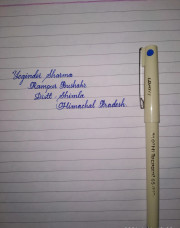 Yoginder Sharma
Rampur Bushahr
Distt Shimla
Himachal Pradesh.